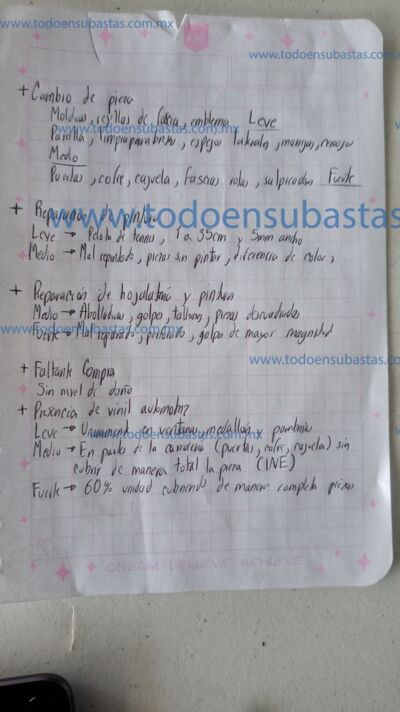 www.todoensubastas.com.mx
+ Cambio de pieza
Molduras, rejillas de fascia, emblema Leve
Parrilla, limpiaparabrisas, espejos laterales, manijas,
Medio
Puertas, cofre, cajuela, fascias rotas, salpicaderas Fuerte
+ Reparación de pintura
www.todoensubastas
Leve → Pelota de tenis, 1 a 35cm y 5mm ancho
Medio → Mal reparado, piezas sin pintar, diferencia de color,
+ Reparación de hojalatería y pintura
Medio → Abolladuras, golpes, tallones, piezas
Fuerte → Mal reparado, perforado, golpes de mayor magnitud
www.todoensubastas.com.mx
+ Faltante Compra
Sin nivel de daño
+ Presencia de vinil automotriz
Leve → Unicamente en ventanas, medallon y parabrisas
Medio → En partes de la carrocería (puertas, cofre, cajuela) sin
cubrir de manera total la pieza (INE)
Fuerte → 60% unidad cubriendo de manera completa piezas
DREAM · BELIEVE · ACHIEVE